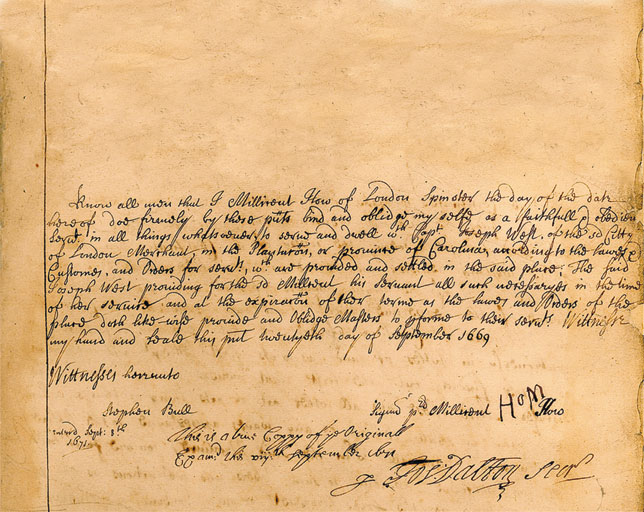 Know all men that I Millicent How of London Spinster the day of the date
hereof doe firmely by these pñts bind and oblidge my selfe as a faithfull & obedient
Servt. in all things whatsoever, to serve and dwell wth Capt. Joseph West, of the sd Citty
of London Merchant, in the Plantacõn, or province of Carolina, according to the lawes,
Customes, and Orders for servts. wch. are provided and settled in the said place. The said
Joseph West providing for the sd Millicent his servant all such necessaryes in the time
of her service and at the expiracõn of her terme as the lawes and Orders of the
place doth like wise provide and Oblidge Masters to pforme to their servts. Wittnesse
my hand and seale this pñt twentyeth day of September 1669
Wittnesses hereunto
Stephen Bull
Signum pd Millicent HoM How
Sept: 8th
1671
This is a true Coppy of ye Originall
Exam'd this September 1671
Jos Dalton Secry